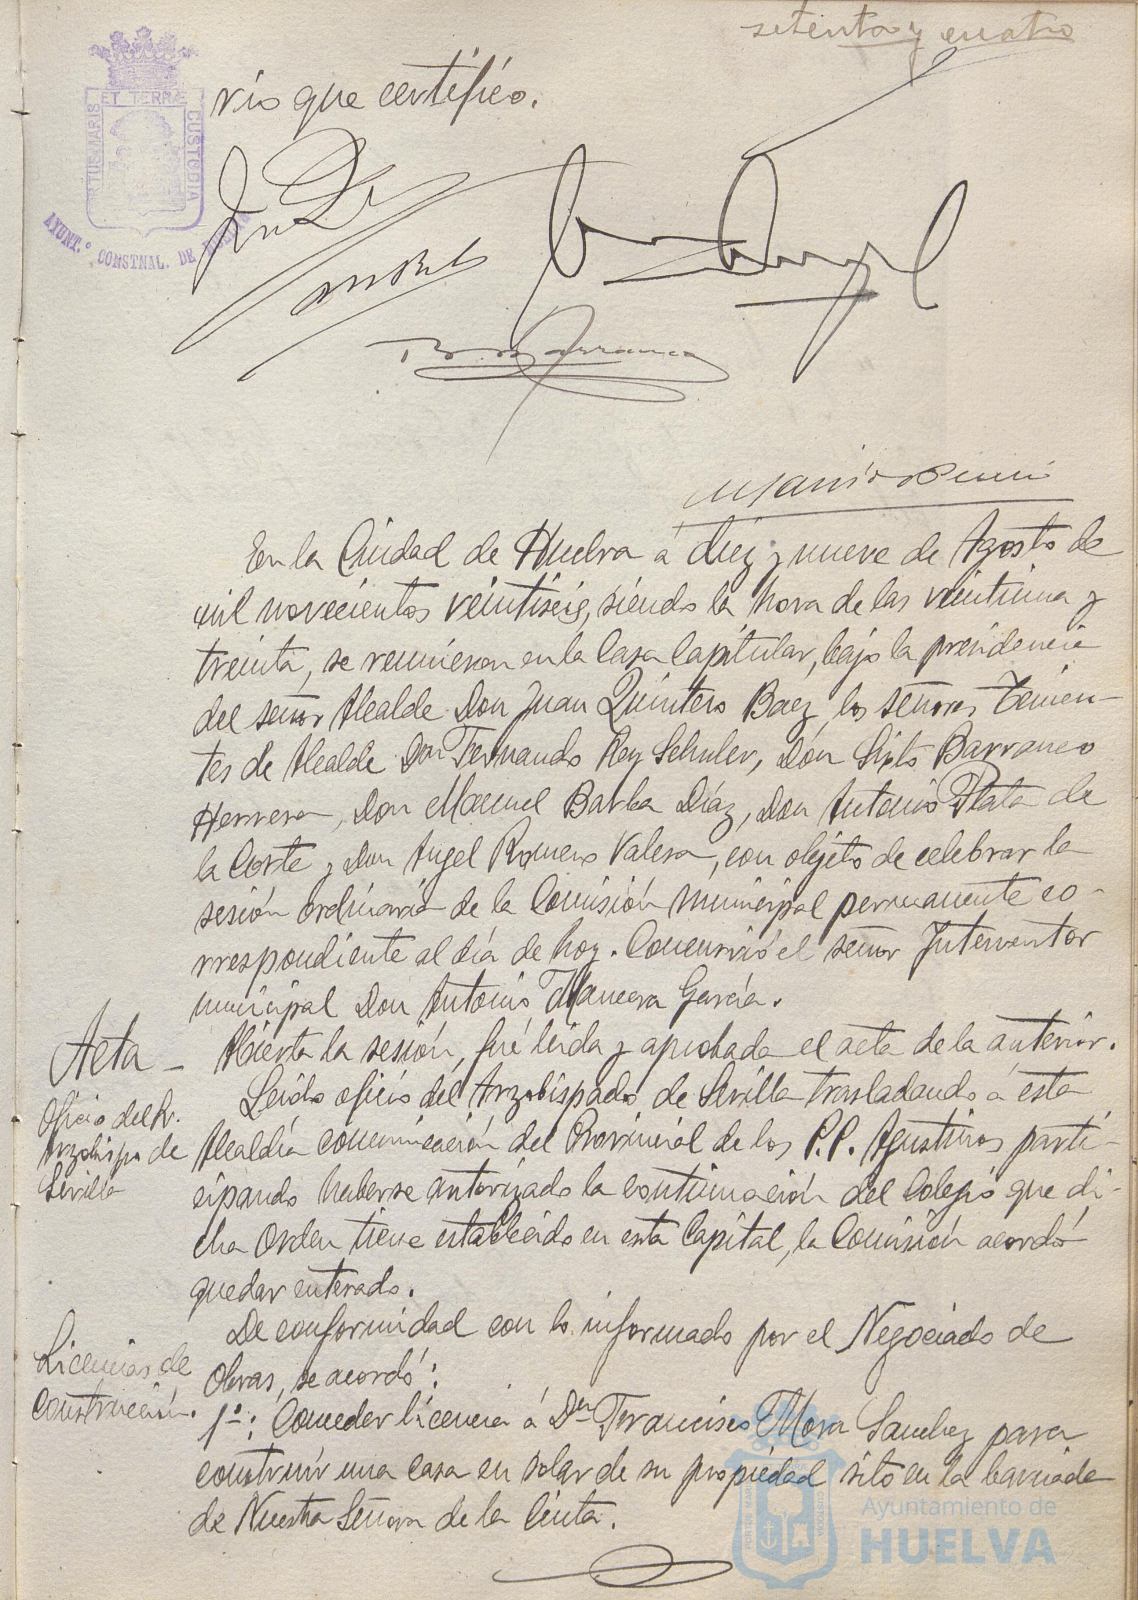 setenta y cuatro
rio que certifico.
PORTUS MARIS ET TERRÆ CUSTODIA
AYUNT.º CONSTNAL. DE HUELVA
En la Ciudad de Huelva á diez y nueve de Agosto de
mil novecientos veintiseis, siendo la hora de las veintiuna y
treinta, se reunieron en la Casa Capitular, bajo la presidencia
del señor Alcalde Don Juan Quintero Baez, los señores Tenien-
tes de Alcalde Don Fernando Rey Schuler, Don Sixto Barranco
Herrera, Don Manuel Barba Díaz, Don Antonio Plata de
la Corte y Don Angel Romero Valera, con objeto de celebrar la
sesión ordinaria de la Comisión municipal permanente co-
rrespondiente al día de hoy. Concurrió el señor Interventor
municipal Don Antonio Mancera García.
Acta - Abierta la sesión, fué leida y aprobada el acta de la anterior.
Oficio del R.
Arzobispo de
Sevilla
Leido oficio del Arzobispado de Sevilla trasladando á esta
Alcaldía comunicación del Provincial de los P.P. Agustinos parti-
cipando haberse autorizado la continuación del Colegio que di-
cha Orden tiene establecido en esta Capital, la Comisión acordó
quedar enterado.
Licencias de
Construcción.
De conformidad con lo informado por el Negociado de
Obras, se acordó:
1º: Conceder licencia á Dn Francisco Mora Sanchez para
construir una casa en solar de su propiedad sito en la barriada
de Nuestra Señora de la Cinta.
Ayuntamiento de
HUELVA